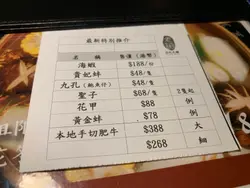 最新特別推介
名稱 售價(港幣)
海蝦 $188/份
貴妃蚌 $48/隻
丸孔(鮑魚仔) $48/隻
聖子 $68/隻 2隻起
花甲 $88 例
黃金蚌 $78 例
本地手切肥牛 $388 大
$268 細